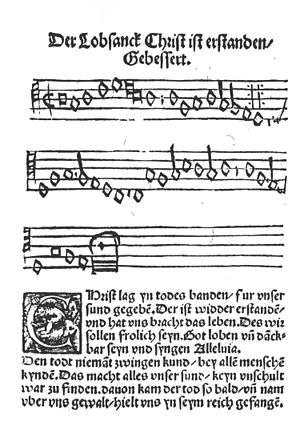 Der Lobsanck Christ ist erstanden-
Gebessert.
CHrist lag yn todes banden / fur vnser
sund gegebē. Der ist widder erstandē-
vnd hat vns bracht das leben. Des wir
sollen frolich seyn. Got loben vñ dāck-
bar seyn vnd syngen Alleluia.
Den todt niemāt zwingen kund / bey allē menschē
kyndē. Das macht alles vnser sund / keyn vnschult
war zu finden. dauon kam der tod so bald / vñ nam
vber vns gewalt / hielt vns yn seym reich gefangē.